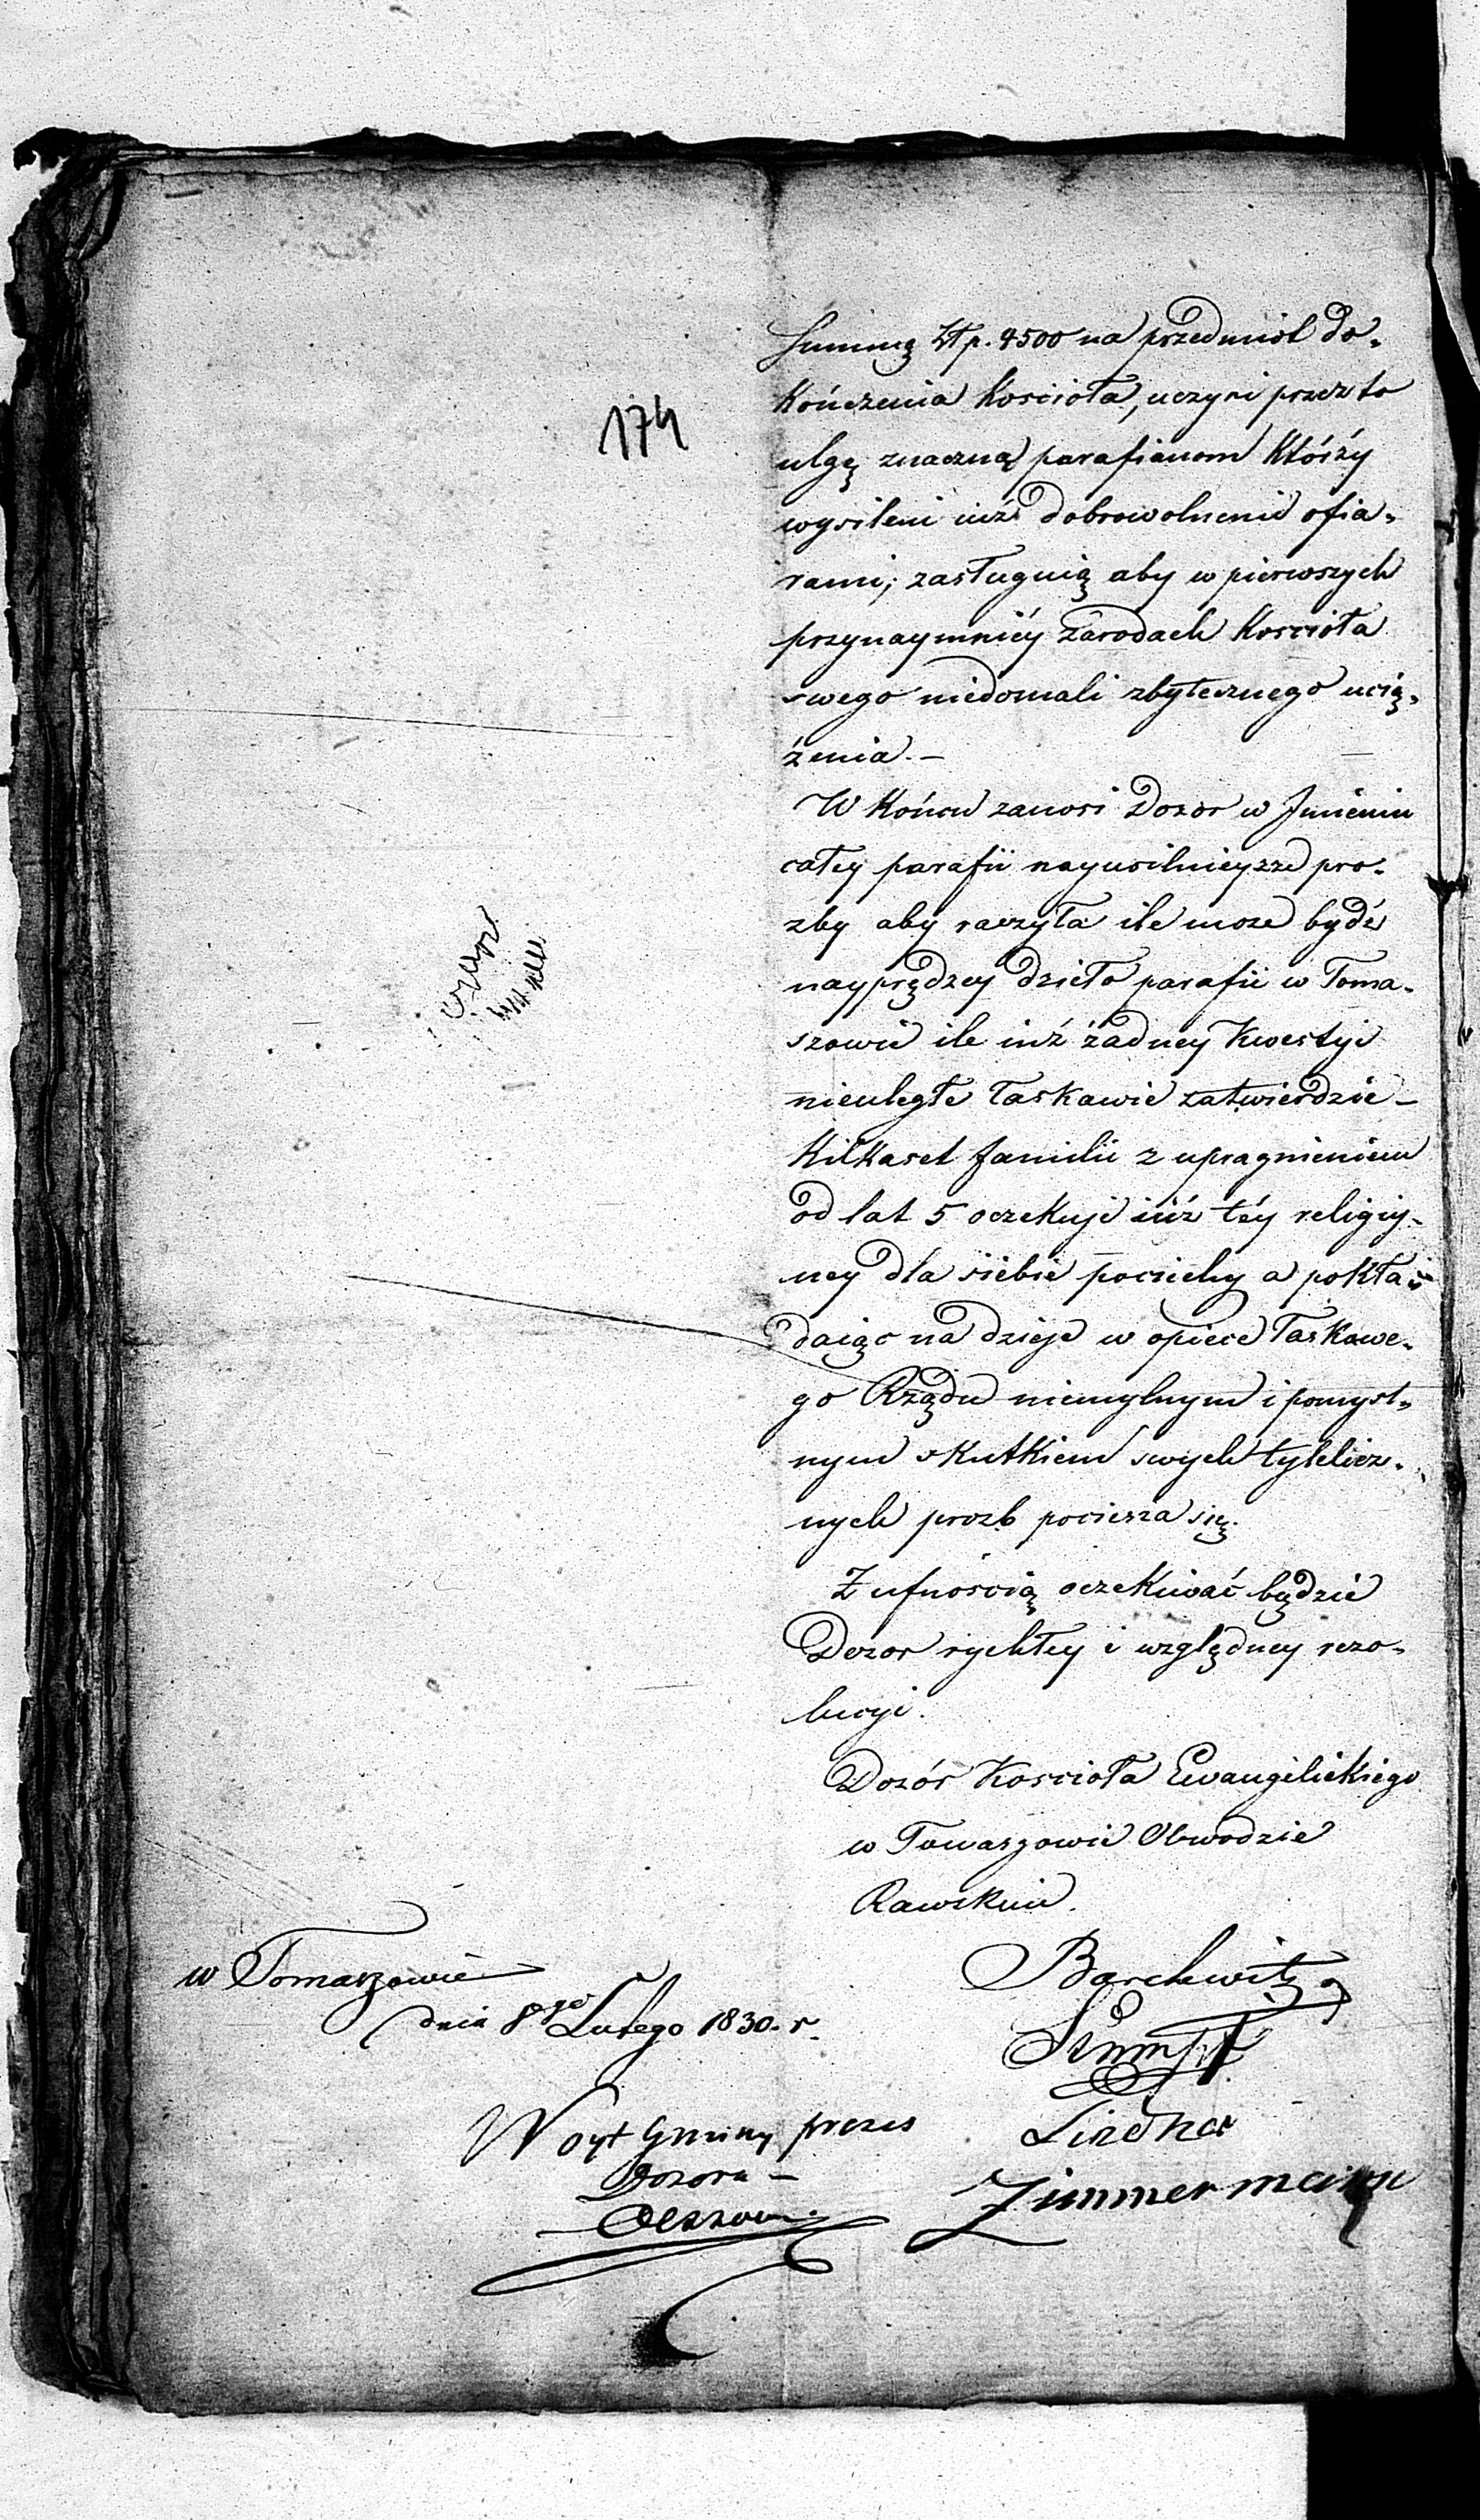 174
Summę Złp. 4500 na przedmiot do-
kończenia Kościoła, uczyni przez to
ulgę znaczną parafianom którzy
wysileni iuż dobrowolnemi ofia-
rami, zasługuią aby w pierwszych
przynaymniéy zarodach Kościoła
swego niedoznali zbytecznego ucią-
żenia.—
W Końcu zanosi Dozor w Jmieniu
całey parafii nayusilnieysze pro-
zby aby raczyła ile może bydź
nayprędzey dzieło parafii w Toma-
szowie ile iuż żadney Kwestyi
nieuległe łaskawie zatwierdzić—
Kilkaset familii z upragnieniem
od lat 5 oczekuje iuż téy religiy-
ney dla siebie pociechy a pokła-
daiąc nadzieje w opiece łaskawe-
go Rządu niemylnym i pomyśl-
nym skutkiem swych tylelicz-
nych prozb pociesza się.
Z ufnością oczekiwać będzie
Dozor rychłey i względney rezo-
lucyi.
Dozór Kościoła Ewangelickiego
w Tomaszowie Obwodzie
Rawskim.
w Tomaszowie
dnia 8go Lutego 1830. r.
Barchwitz
Stumpf
Lindner
Zimmermann
Woyt Gminy prezes
Dozoru—